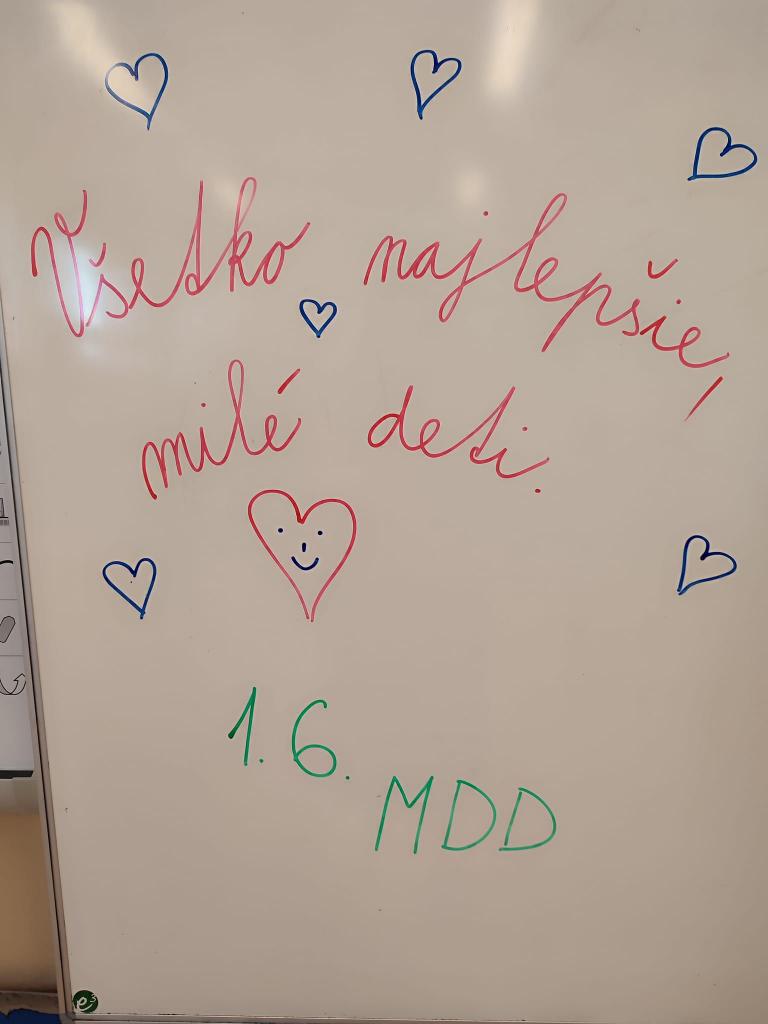 Všetko najlepšie,
milé deti.
1.6.
MDD
e3